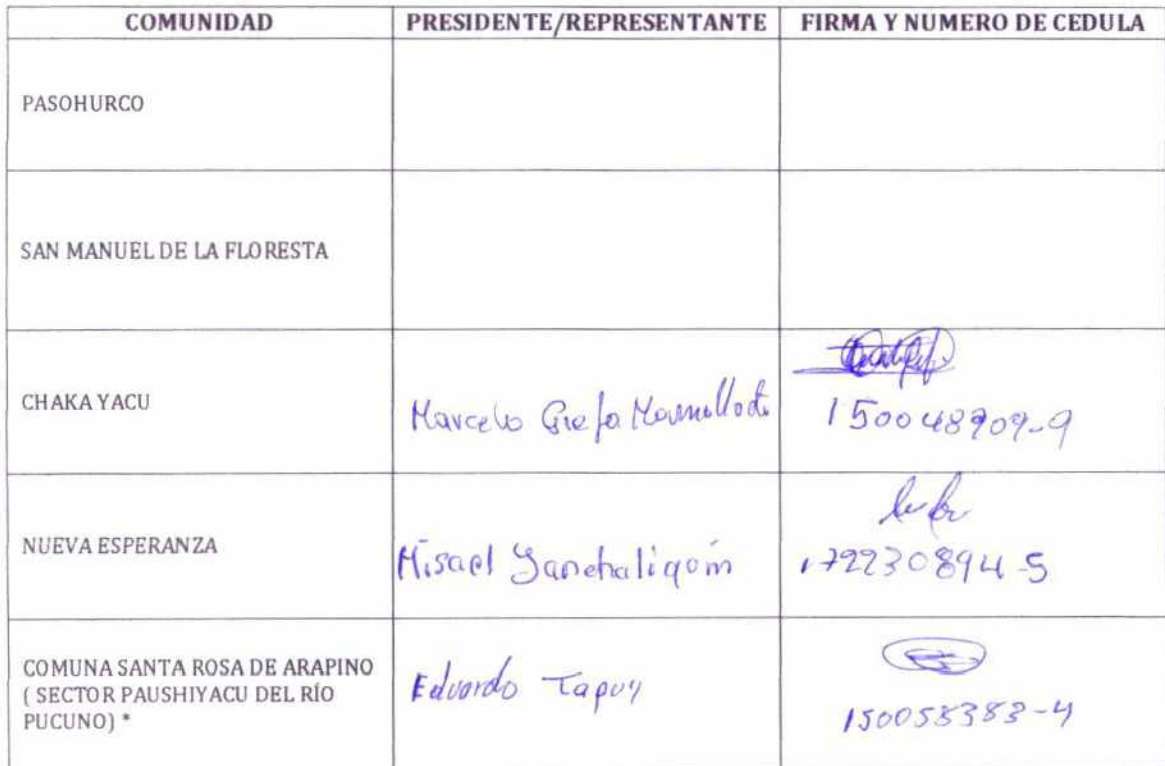 COMUNIDAD PRESIDENTE/REPRESENTANTE FIRMA Y NUMERO DE CEDULA
PASOHURCO
SAN MANUEL DE LA FLORESTA
CHAKA YACU
Marcelo Grefa
150048909-9
NUEVA ESPERANZA
Misael
172230894-5
COMUNA SANTA ROSA DE ARAPINO
( SECTOR PAUSHIYACU DEL RÍO
PUCUNO) *
Eduardo Tapuy
150058383-4